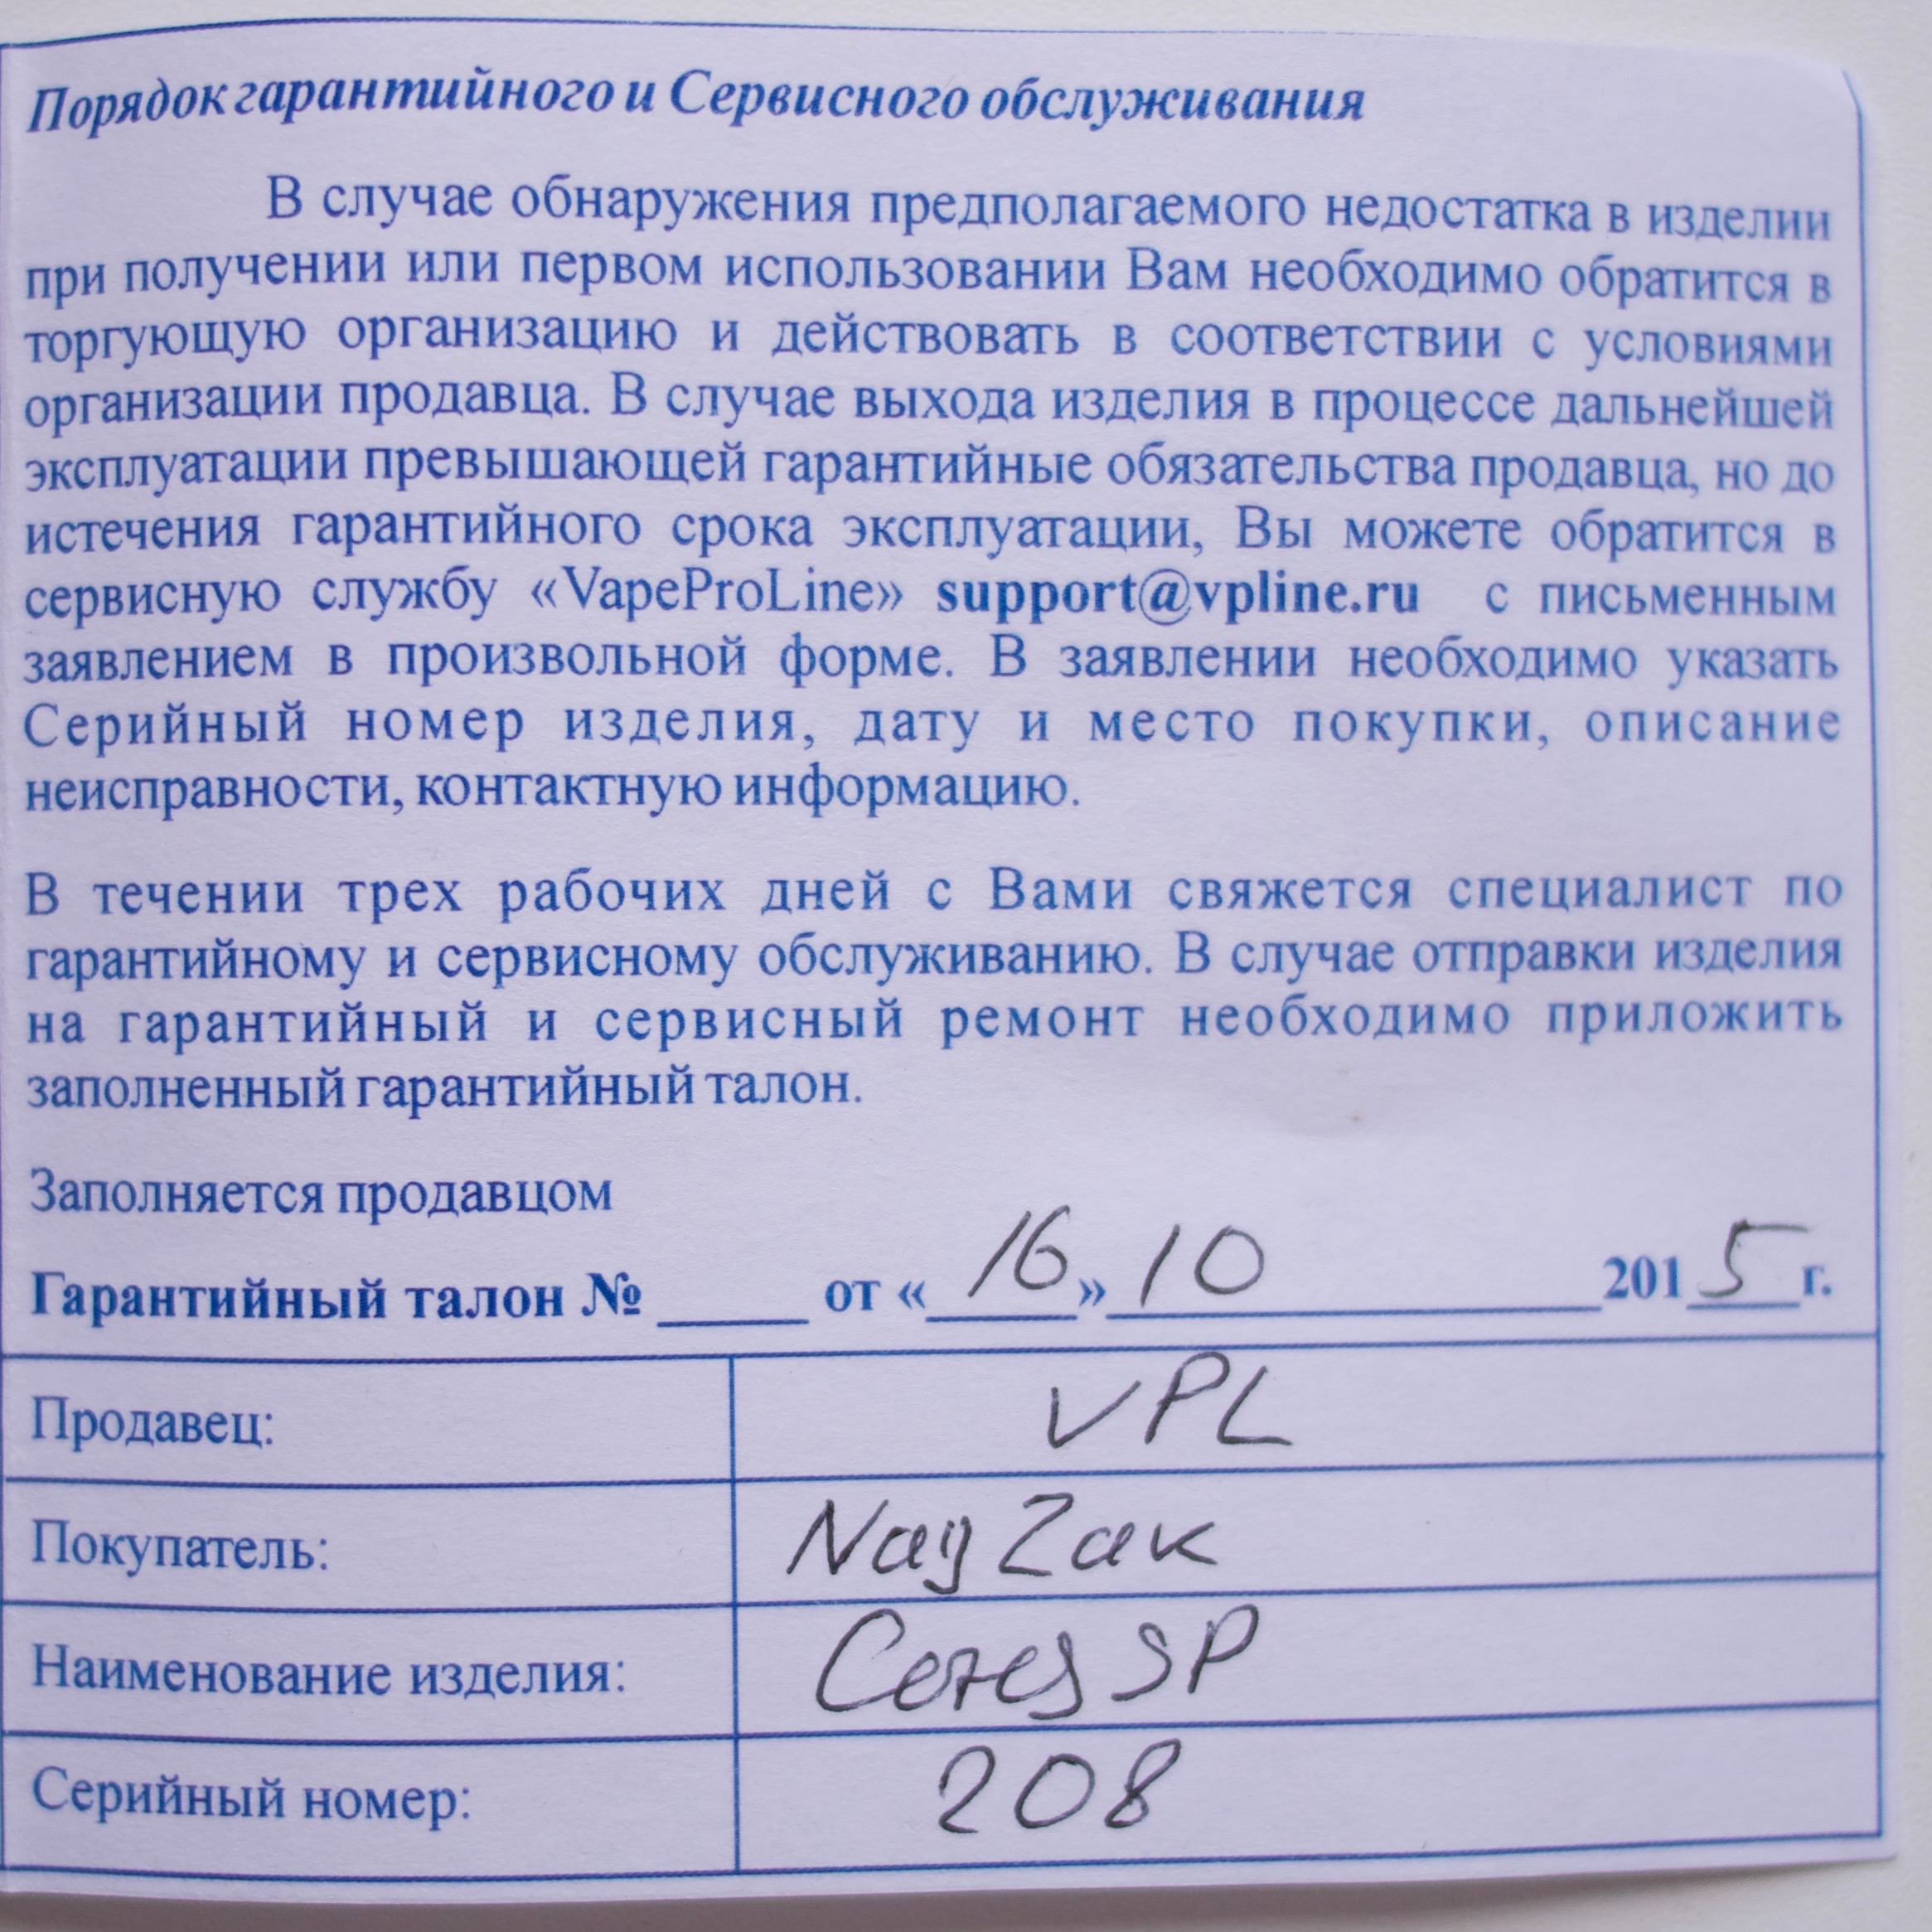 Порядок гарантийного и Сервисного обслуживания
В случае обнаружения предполагаемого недостатка в изделии
при получении или первом использовании Вам необходимо обратится в
торгующую организацию и действовать в соответствии с условиями
организации продавца. В случае выхода изделия в процессе дальнейшей
эксплуатации превышающей гарантийные обязательства продавца, но до
истечения гарантийного срока эксплуатации, Вы можете обратится в
сервисную службу «VapeProLine» support@vpline.ru с письменным
заявлением в произвольной форме. В заявлении необходимо указать
Серийный номер изделия, дату и место покупки, описание
неисправности, контактную информацию.
В течении трех рабочих дней с Вами свяжется специалист по
гарантийному и сервисному обслуживанию. В случае отправки изделия
на гарантийный и сервисный ремонт необходимо приложить
заполненный гарантийный талон.
Заполняется продавцом
Гарантийный талон № _____ от «16» 10 2015 г.
Продавец: VPL
Покупатель: Nag Zak
Наименование изделия: SP
Серийный номер: 208